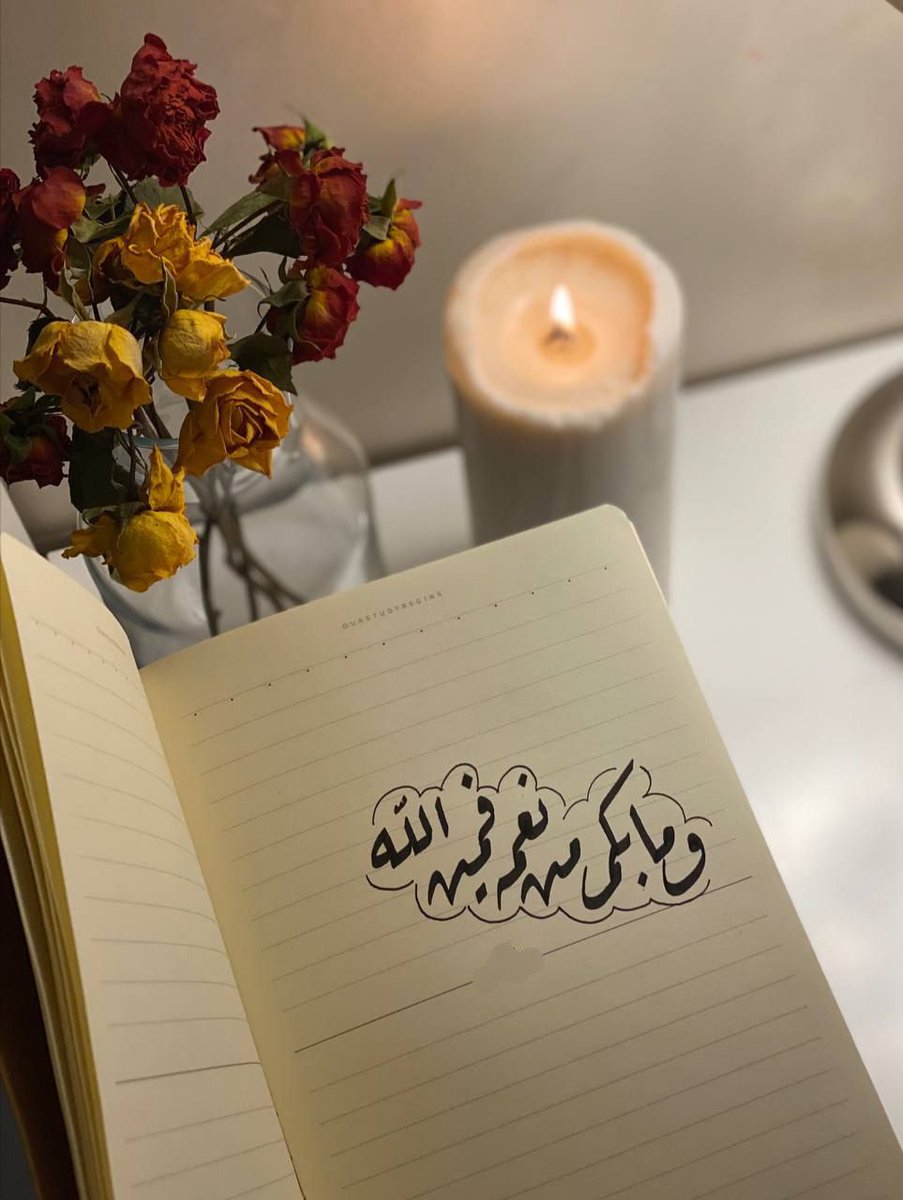 OURSTUDYBEGINS
وما بكم من نعمه فمن الله